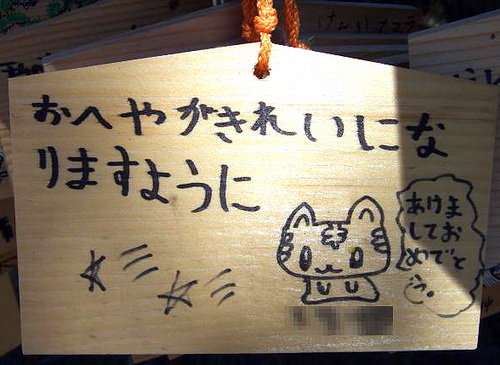 おへやがきれいにな
りますように
あけま
してお
めでと
う。